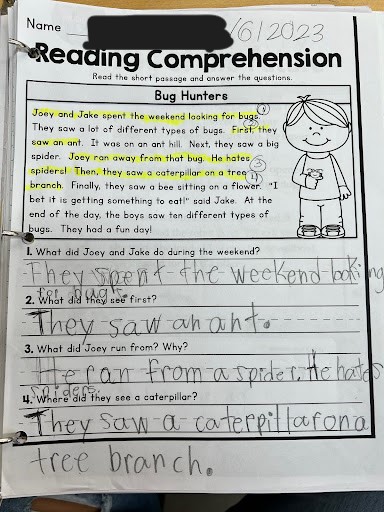 Name
/6/2023
Reading Comprehension
Read the short passage and answer the questions.
Bug Hunters
Joey and Jake spent the weekend looking for bugs. 1
They saw a lot of different types of bugs. First, they 2
saw an ant. It was on an ant hill. Next, they saw a big
spider. Joey ran away from that bug. He hates 3
spiders! Then, they saw a caterpillar on a tree 4
branch. Finally, they saw a bee sitting on a flower. "I
bet it is getting something to eat!" said Jake. At the
end of the day, the boys saw ten different types of
bugs. They had a fun day!
1. What did Joey and Jake do during the weekend?
They spent the weekend looking
for bugs.
2. What did they see first?
They saw an ant.
3. What did Joey run from? Why?
He ran from a spider. He hates
spiders.
4. Where did they see a caterpillar?
They saw a caterpillar on a
tree branch.